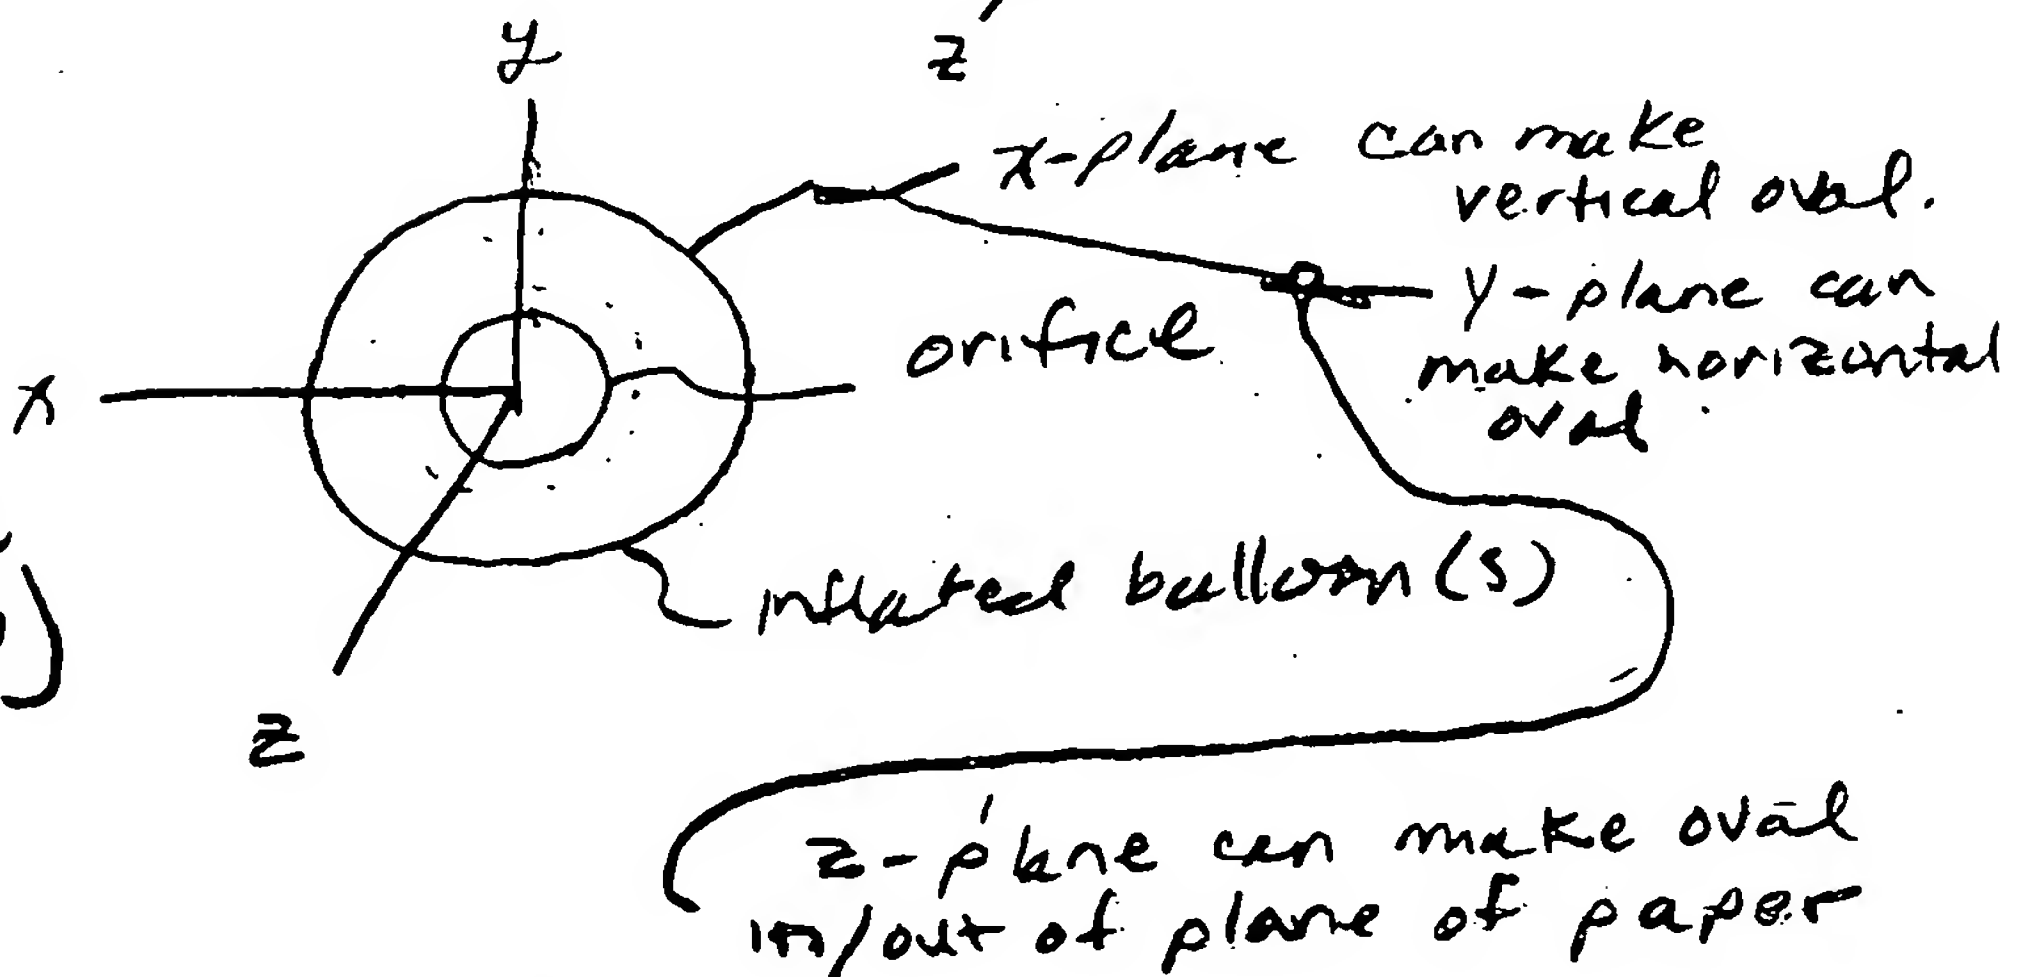 y
z
x-plane can make
vertical oval.
y-plane can
make horizontal
oval
orifice
x
inflated balloon(s)
z
z-plane can make oval
in/out of plane of paper